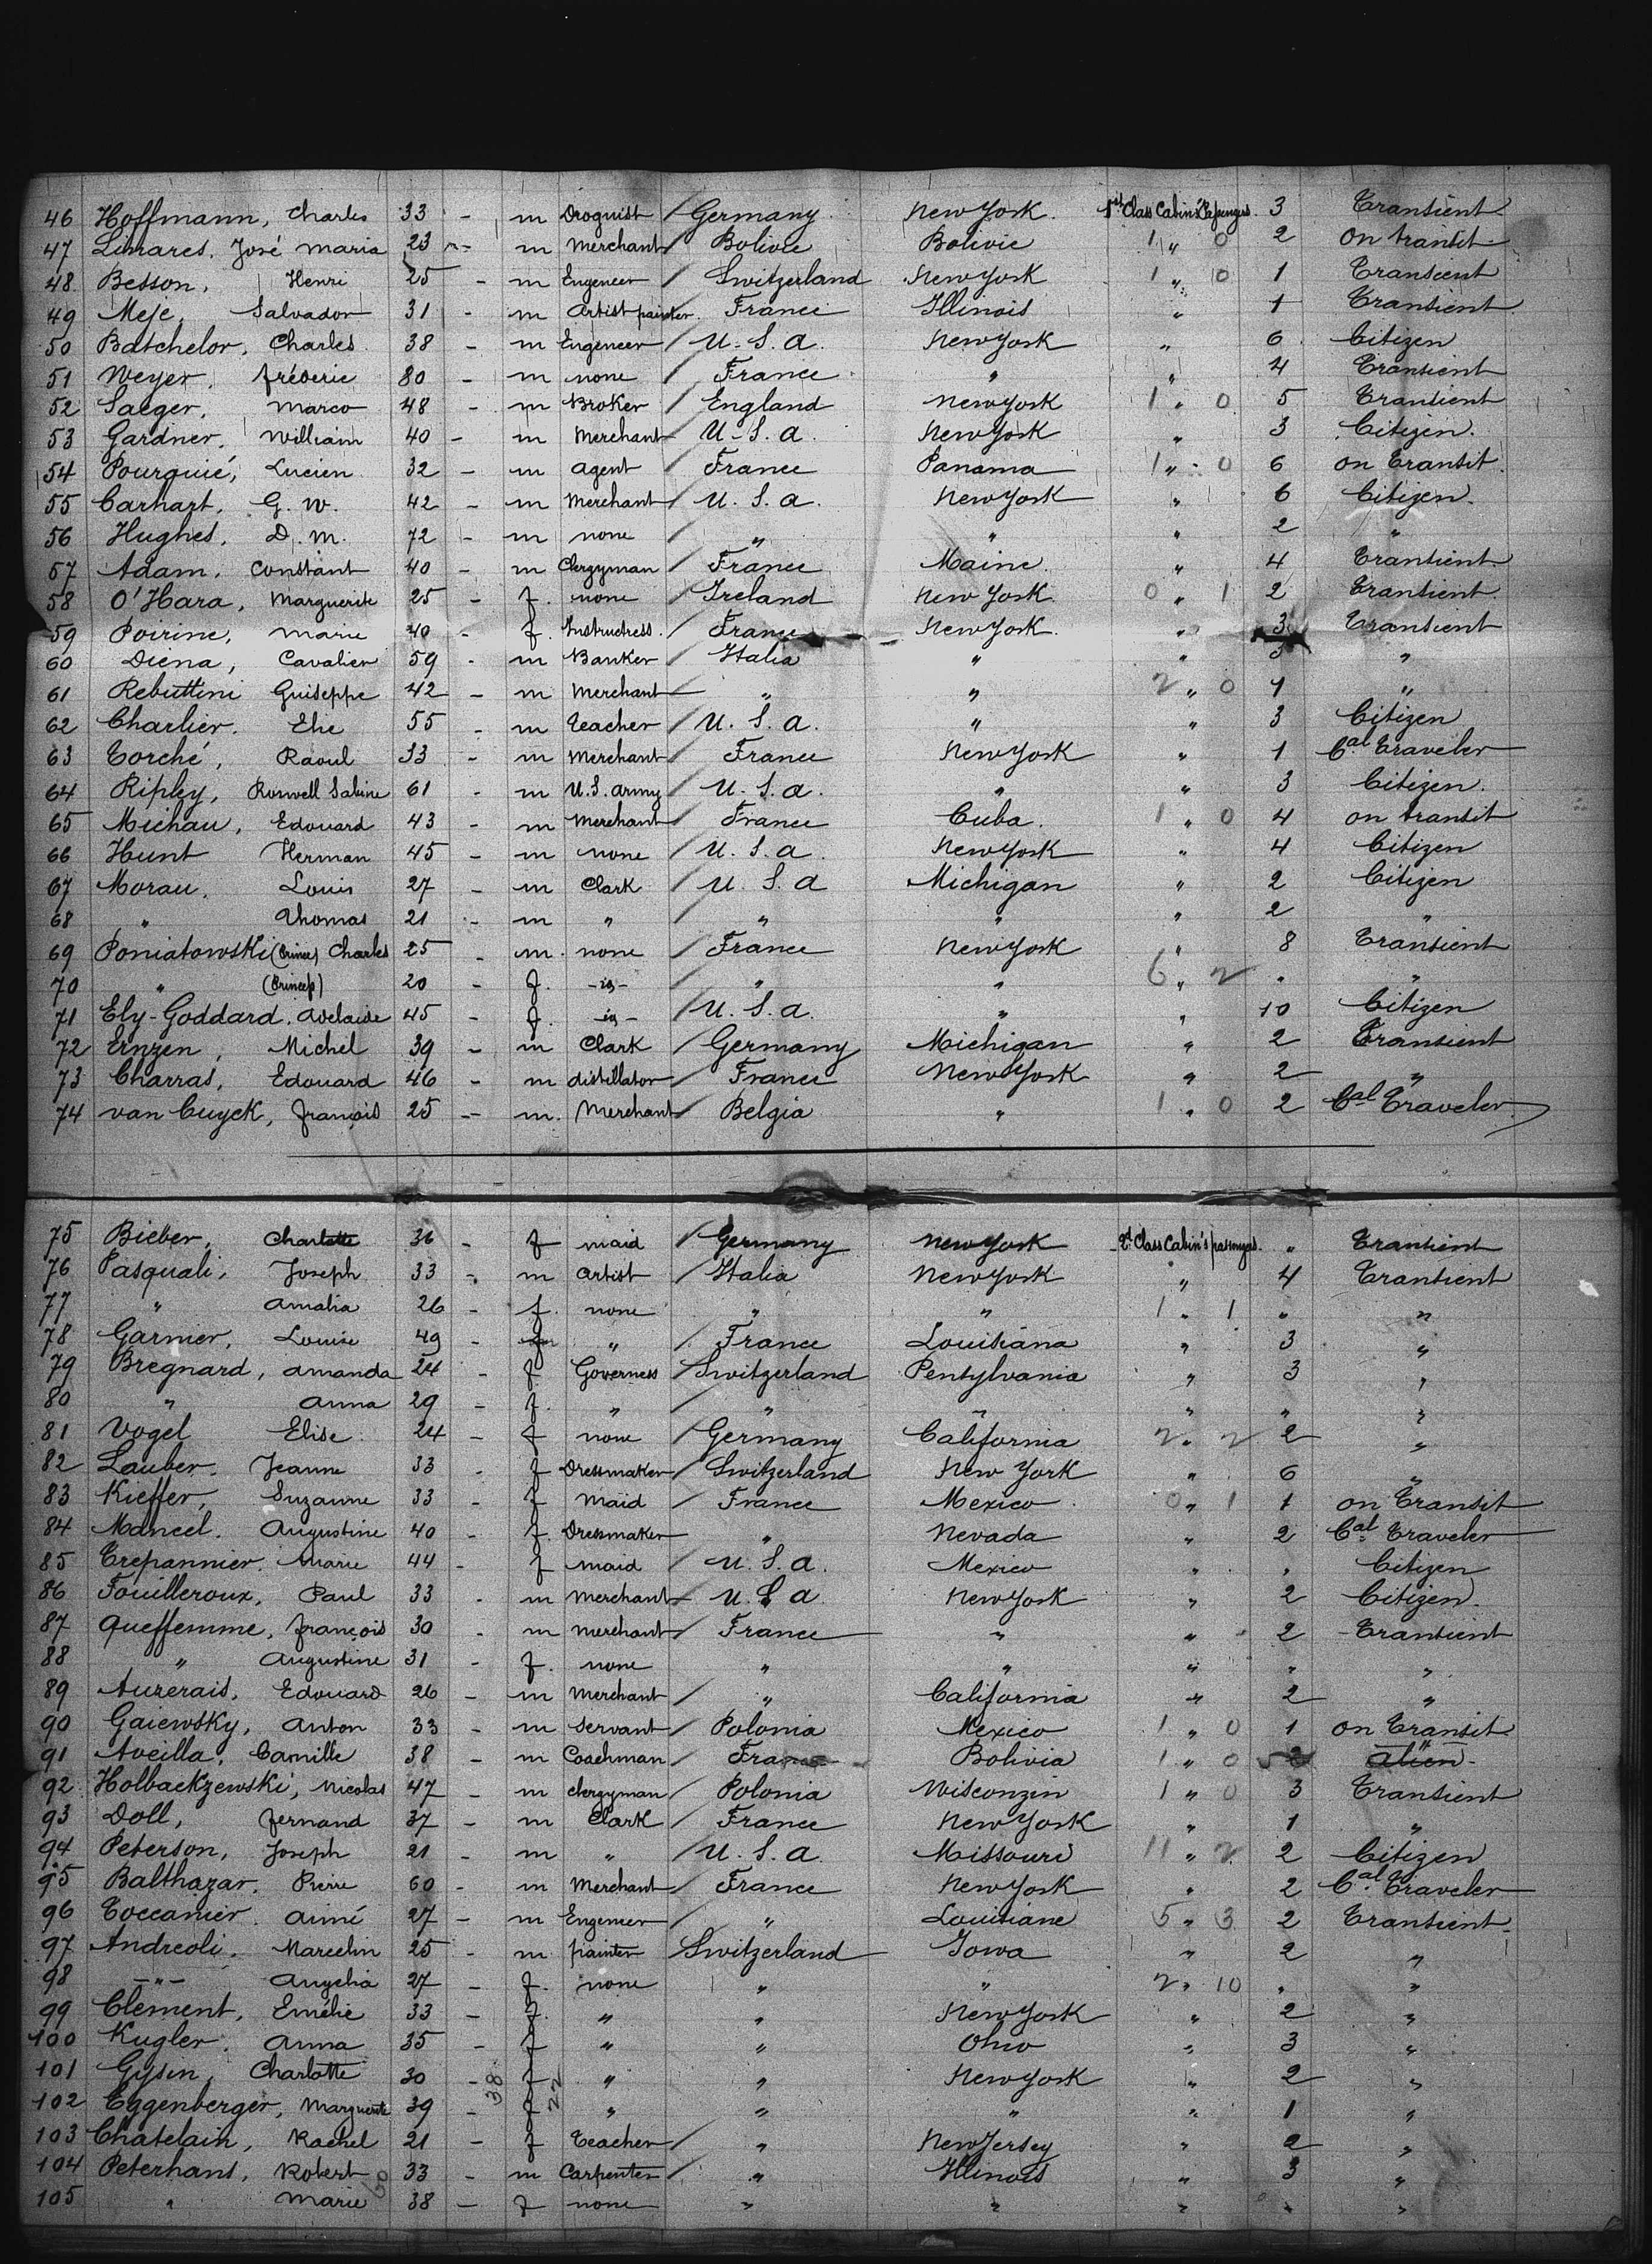 46 Hoffmann, Charles 33 - m Droguist Germany New York 1st Class Cabin's 3 Transient
47 Linares, José Maria 23 - m Merchant Bolivie Bolivie 1 " 0 2 on transit
48 Besson, Henri 25 - m Engeneer Switzerland New York 1 " 0 1 Transient
49 Meje, Salvador 31 - m Artist painter France Illinois " 1 Transient
50 Batchelor, Charles 38 - m Engeneer U.S.a. New York " 6 Citizen
51 Weyer, fréderic 80 - m none France " " 4 Transient
52 Saeger, Marco 48 - m Broker England New York 1 " 0 5 Transient
53 Gardner, William 40 - m Merchant U.S.a. New York " 3 Citizen
54 Pourquié, Lucien 32 - m agent France Panama 1 " 0 6 on transit
55 Carhart, G. W. 42 - m Merchant U.S.a. New York " 6 Citizen
56 Hughes, D. M. 72 - m none " " " 2 "
57 Adam, Constant 40 - m Clergyman France Maine " 4 Transient
58 O'Hara, Marguerite 25 - f. none Ireland New York 0 " 1 2 Transient
59 Poirine, Marie 40 - f. Instructress France New York " 3 Transient
60 Diena, Cavalier 59 - m Banker Italia " " "
61 Rebuttini Guiseppe 42 - m Merchant " " 2 " 0 1 "
62 Charlier, Elie 55 - m Teacher U.S.a. " " 3 Citizen
63 Torché, Raoul 33 - m Merchant France New York " 1 Cal Traveler
64 Ripley, Roswell Sabine 61 - m U.S. army U.S.a. " " 3 Citizen
65 Michau, Edouard 43 - m Merchant France Cuba 1 " 0 4 on transit
66 Hunt Herman 45 - m none U.S.a. New York " 4 Citizen
67 Morau, Louis 27 - m Clark U.S.a Michigan " 2 Citizen
68 " Thomas 21 - m " " " " 2 "
69 Poniatowski (Prince) Charles 25 - m none France New York " 8 Transient
70 " (Princess) 20 - f. -id- " " 6 " 2 " "
71 Ely-Goddard, Adelaide 45 - f. -id- U.S.a. " " 10 Citizen
72 Ernzen, Michel 39 - m Clark Germany Michigan " 2 Transient
73 Charras, Edouard 46 - m distillator France New York " 2 "
74 van Cuyck, françois 25 - m. Merchant Belgia " 1 " 0 2 Cal Traveler
75 Bieber, Charlotte 36 - f maid Germany New York 2d Class Cabin's passengers " Transient
76 Pasquali, Joseph 33 - m artist Italia New York " 4 Transient
77 " Amalia 26 - f. none " " 1 " 1 " "
78 Garnier, Louise 49 - " France Louisiana " 3 "
79 Bregnard, amanda 24 - f Governess Switzerland Pensylvania " 3 "
80 " Anna 29 - f. " " " " " "
81 Vogel Elise 24 - f none Germany California 2 " 2 2 "
82 Lauber, Jeanne 33 - f Dressmaker Switzerland New York " 6 "
83 Kieffer, Suzanne 33 - f maid France Mexico 0 " 1 1 on Transit
84 Mancel, Augustine 40 - f. Dressmaker " Nevada " 2 Cal Traveler
85 Trepannier, Marie 44 - f maid U.S.a. Mexico " " Citizen
86 Fouilleroux, Paul 33 - m Merchant U.S.a. New York " 2 Citizen
87 Queffemme, françois 30 - m Merchant France " " 2 Transient
88 " Augustine 31 - f. none " " " " "
89 Auzerais, Edouard 26 - m Merchant " California " 2 "
90 Gaiewsky, Anton 33 - m Servant Polonia Mexico 1 " 0 1 on Transit
91 Aveilla, Camille 38 - m Coachman France Bolivia 1 " 0 2 alien
92 Holbackzewski, Nicolas 47 - m clergyman Polonia Wisconzin 1 " 0 3 Transient
93 Doll, fernand 37 - m Clark France New York " 1 "
94 Peterson, Joseph 21 - m " U.S.a. Missouri 11 " 2 2 Citizen
95 Balthazar, Pierre 60 - m Merchant France New York " 2 Cal Traveler
96 Toccanier, Aimé 27 - m Engeneer " Louisiane 5 " 3 2 Transient
97 Andreoli, Marcelin 25 - m painter Switzerland Iowa " 2 "
98 -"- Angelia 27 - f. none " " 2 " 10 " "
99 Clement, Emélie 33 - f. " " New York " 2 "
100 Kugler, Anna 35 - f " " Ohio " 3 "
101 Gysin, Charlotte 30 - f " " New York " 2 "
38 22
102 Eggenberger, Marguerite 39 - f " " " " 1 "
103 Chatelain, Rachel 21 - f Teacher " New Jersey " 2 "
104 Peterhans, Robert 33 - m Carpenter " Illinois " 3 "
60
105 " Marie 38 - f none " " " " "